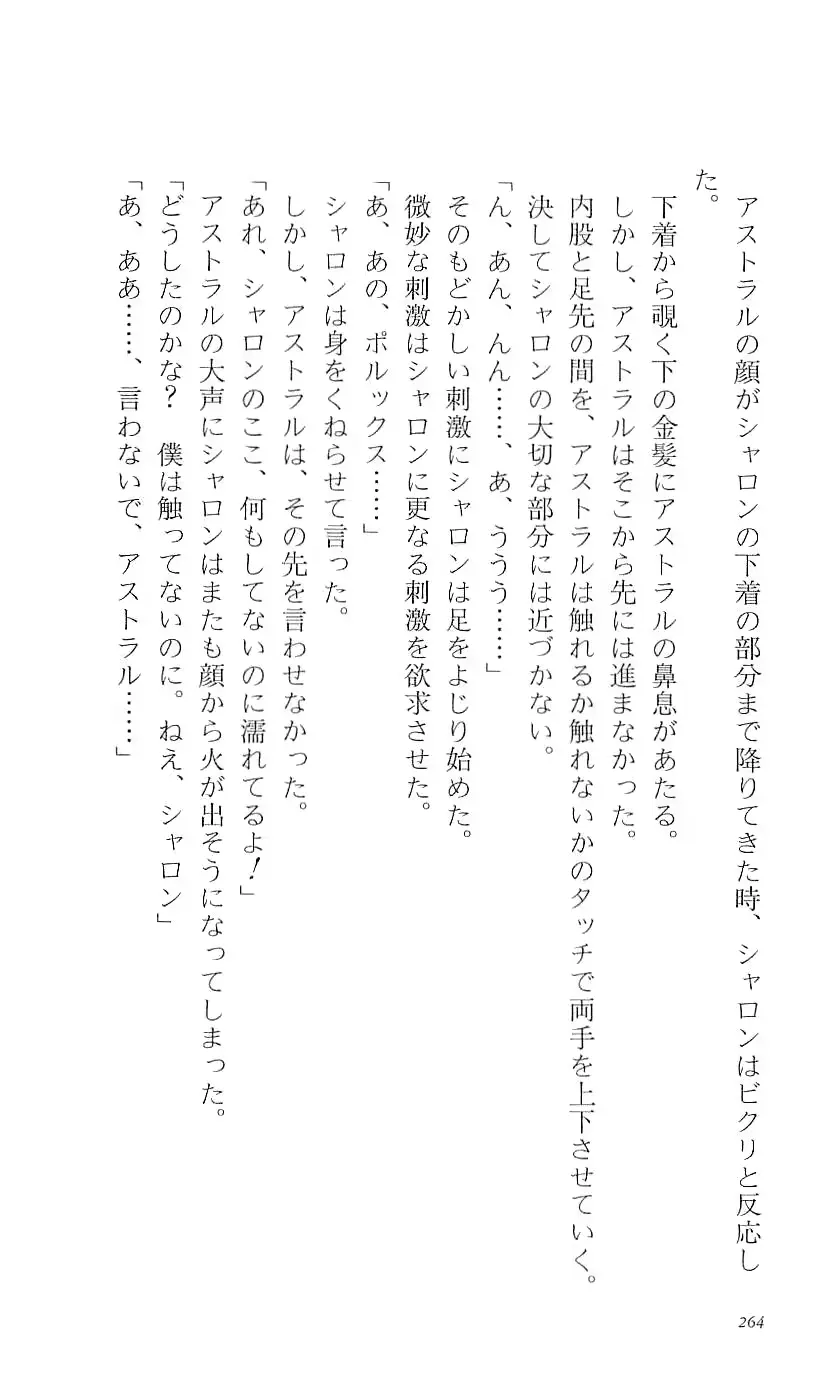 アストラルの顔がシャロンの下着の部分まで降りてきた時、シャロンはビクリと反応し
た。
下着から覗く下の金髪にアストラルの鼻息があたる。
しかし、アストラルはそこから先には進まなかった。
内股と足先の間を、アストラルは触れるか触れないかのタッチで両手を上下させていく。
決してシャロンの大切な部分には近づかない。
「ん、あん、んん……、あ、ううう……」
そのもどかしい刺激にシャロンは足をよじり始めた。
微妙な刺激はシャロンに更なる刺激を欲求させた。
「あ、あの、ポルックス……」
シャロンは身をくねらせて言った。
しかし、アストラルは、その先を言わせなかった。
「あれ、シャロンのここ、何もしてないのに濡れてるよ！」
アストラルの大声にシャロンはまたも顔から火が出そうになってしまった。
「どうしたのかな？　僕は触ってないのに。ねえ、シャロン」
「あ、ああ……、言わないで、アストラル……」
264